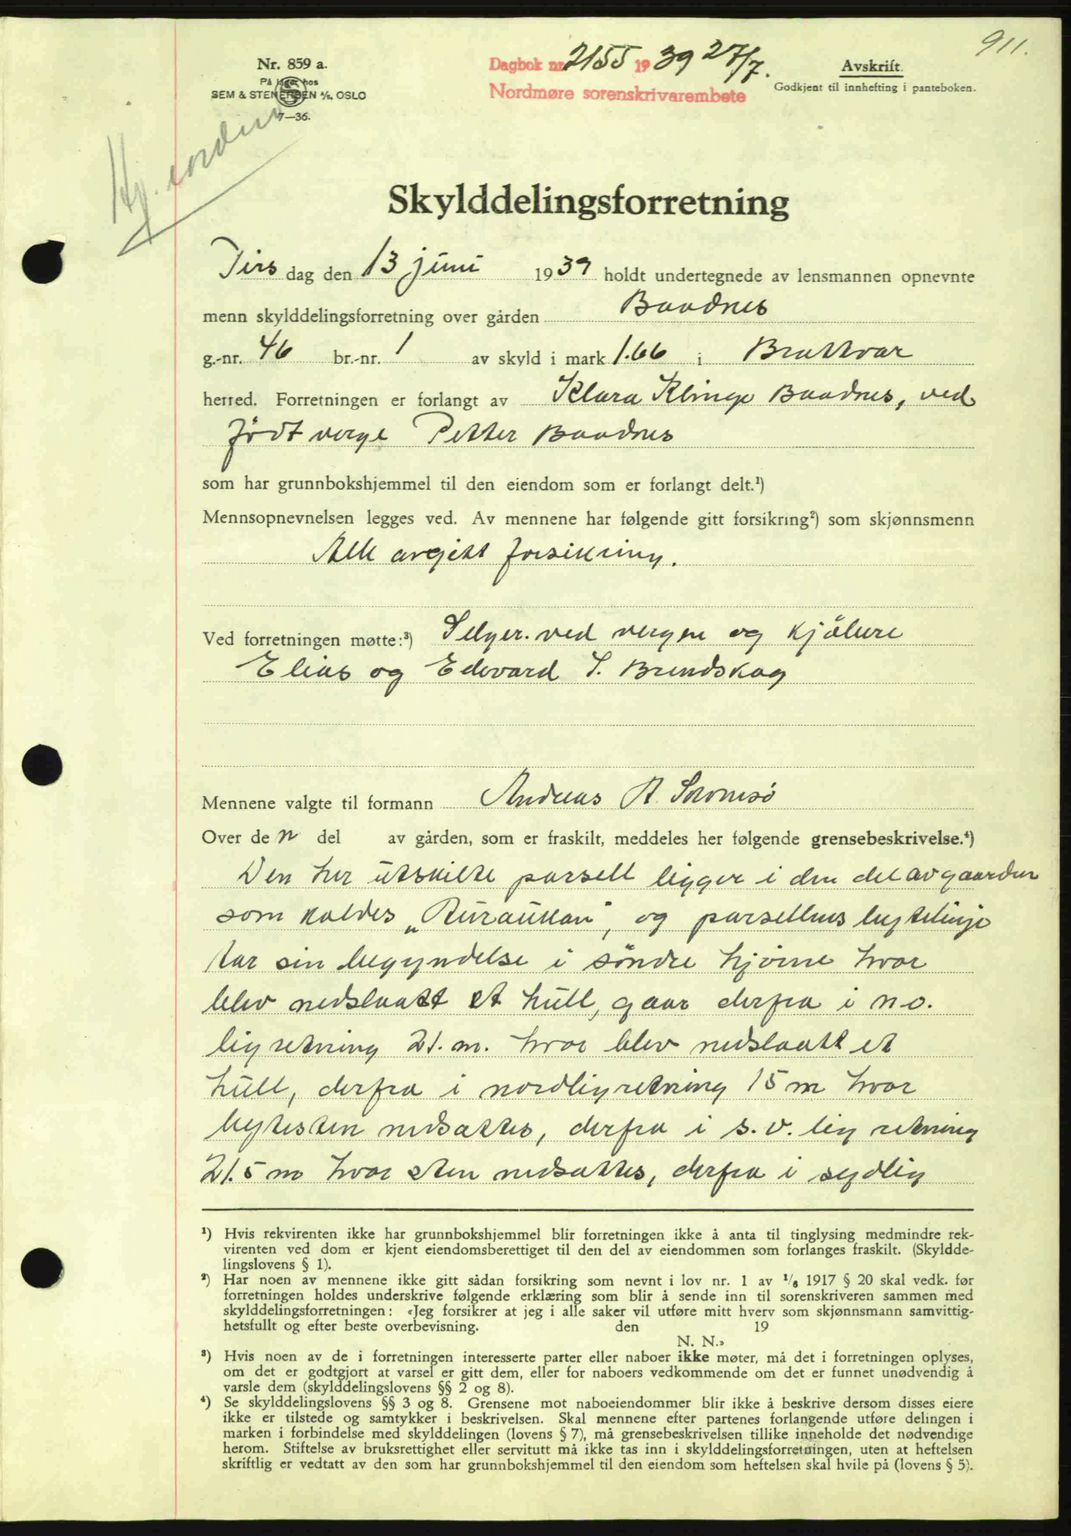 911.
Nr. 859 a.
På lager hos
SEM & STENERSEN A/S, OSLO
7—36.
Dagbok nr. 2155 1939 27/7.
Nordmøre sorenskrivarembete
Avskrift.
Godkjent til innhefting i panteboken.
Skylddelingsforretning
Tirs dag den 13 juni 1939 holdt undertegnede av lensmannen opnevnte
menn skylddelingsforretning over gården Baadnes
g.-nr. 46 br.-nr. 1 av skyld i mark 1.66 i Brattvær
herred. Forretningen er forlangt av Klara Klinge Baadnes, ved
født verge Petter Baadnes
som har grunnbokshjemmel til den eiendom som er forlangt delt.¹)
Mennsopnevnelsen legges ved. Av mennene har følgende gitt forsikring²) som skjønnsmenn
Alle avgitt forsikring.
Ved forretningen møtte:³) Selger ved vergen og kjöbere
Elias og Edevard S. Brendskag
Mennene valgte til formann Andreas A.
Over de n del av gården, som er fraskilt, meddeles her følgende grensebeskrivelse.⁴)
Den her utskilte parsell ligger i den del av gaarden
som kaldes „ ", og parsellens bytelinje
tar sin begyndelse i søndre hjörne hvor
blev nedslaatt et hull, gaar derfra i n.o.
lig retning 21. m. hvor blev nedslaatt et
hull, derfra i nordlig retning 15 m hvor
bytesten nedsattes, derfra i s.v. lig retning
21.5 m hvor sten nedsattes, derfra i sydlig
¹) Hvis rekvirenten ikke har grunnbokshjemmel blir forretningen ikke å anta til tinglysing medmindre rek-
virenten ved dom er kjent eiendomsberettiget til den del av eiendommen som forlanges fraskilt. (Skyldde-
lingslovens § 1).
²) Har noen av mennene ikke gitt sådan forsikring som nevnt i lov nr. 1 av 1/6 1917 § 20 skal vedk. før
forretningen holdes underskrive følgende erklæring som blir å sende inn til sorenskriveren sammen med
skylddelingsforretningen: «Jeg forsikrer at jeg i alle saker vil utføre mitt hverv som skjønnsmann samvittig-
hetsfullt og efter beste overbevisning. den 19
N. N.»
³) Hvis noen av de i forretningen interesserte parter eller naboer ikke møter, må det i forretningen oplyses,
om det er godtgjort at varsel er gitt dem, eller for naboers vedkommende om det er funnet unødvendig å
varsle dem (skylddelingslovens §§ 2 og 8).
⁴) Se skylddelingslovens §§ 3 og 8. Grensene mot naboeiendommer blir ikke å beskrive dersom disses eiere
ikke er tilstede og samtykker i beskrivelsen. Skal mennene efter partenes forlangende utføre delingen i
marken i forbindelse med skylddelingen (lovens § 7), må grensebeskrivelsen tillike inneholde det nødvendige
herom. Stiftelse av bruksrettighet eller servitutt må ikke tas inn i skylddelingsforretningen, uten at heftelsen
skriftlig er vedtatt av den som har grunnbokshjemmel til den eiendom som heftelsen skal hvile på (lovens § 5).